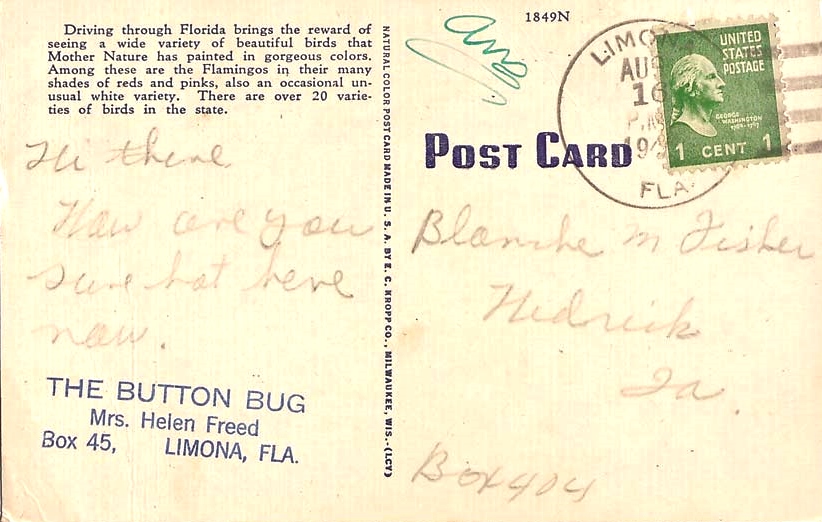 Driving through Florida brings the reward of
seeing a wide variety of beautiful birds that
Mother Nature has painted in gorgeous colors.
Among these are the Flamingos in their many
shades of reds and pinks, also an occasional un-
usual white variety. There are over 20 varie-
ties of birds in the state.
Hi there
How are you
sure hot here
now.
THE BUTTON BUG
Mrs. Helen Freed
Box 45, LIMONA, FLA.
NATURAL COLOR POST CARD MADE IN U. S. A. BY E. C. KROPP CO., MILWAUKEE, WIS.-(LCY)
1849N
Ans
POST CARD
LIMONA
AUG
16
P.M.
FLA.
UNITED
STATES
POSTAGE
GEORGE
WASHINGTON
1 CENT 1
Blanche M Fisher
Hedrick
Ia.
Box 404